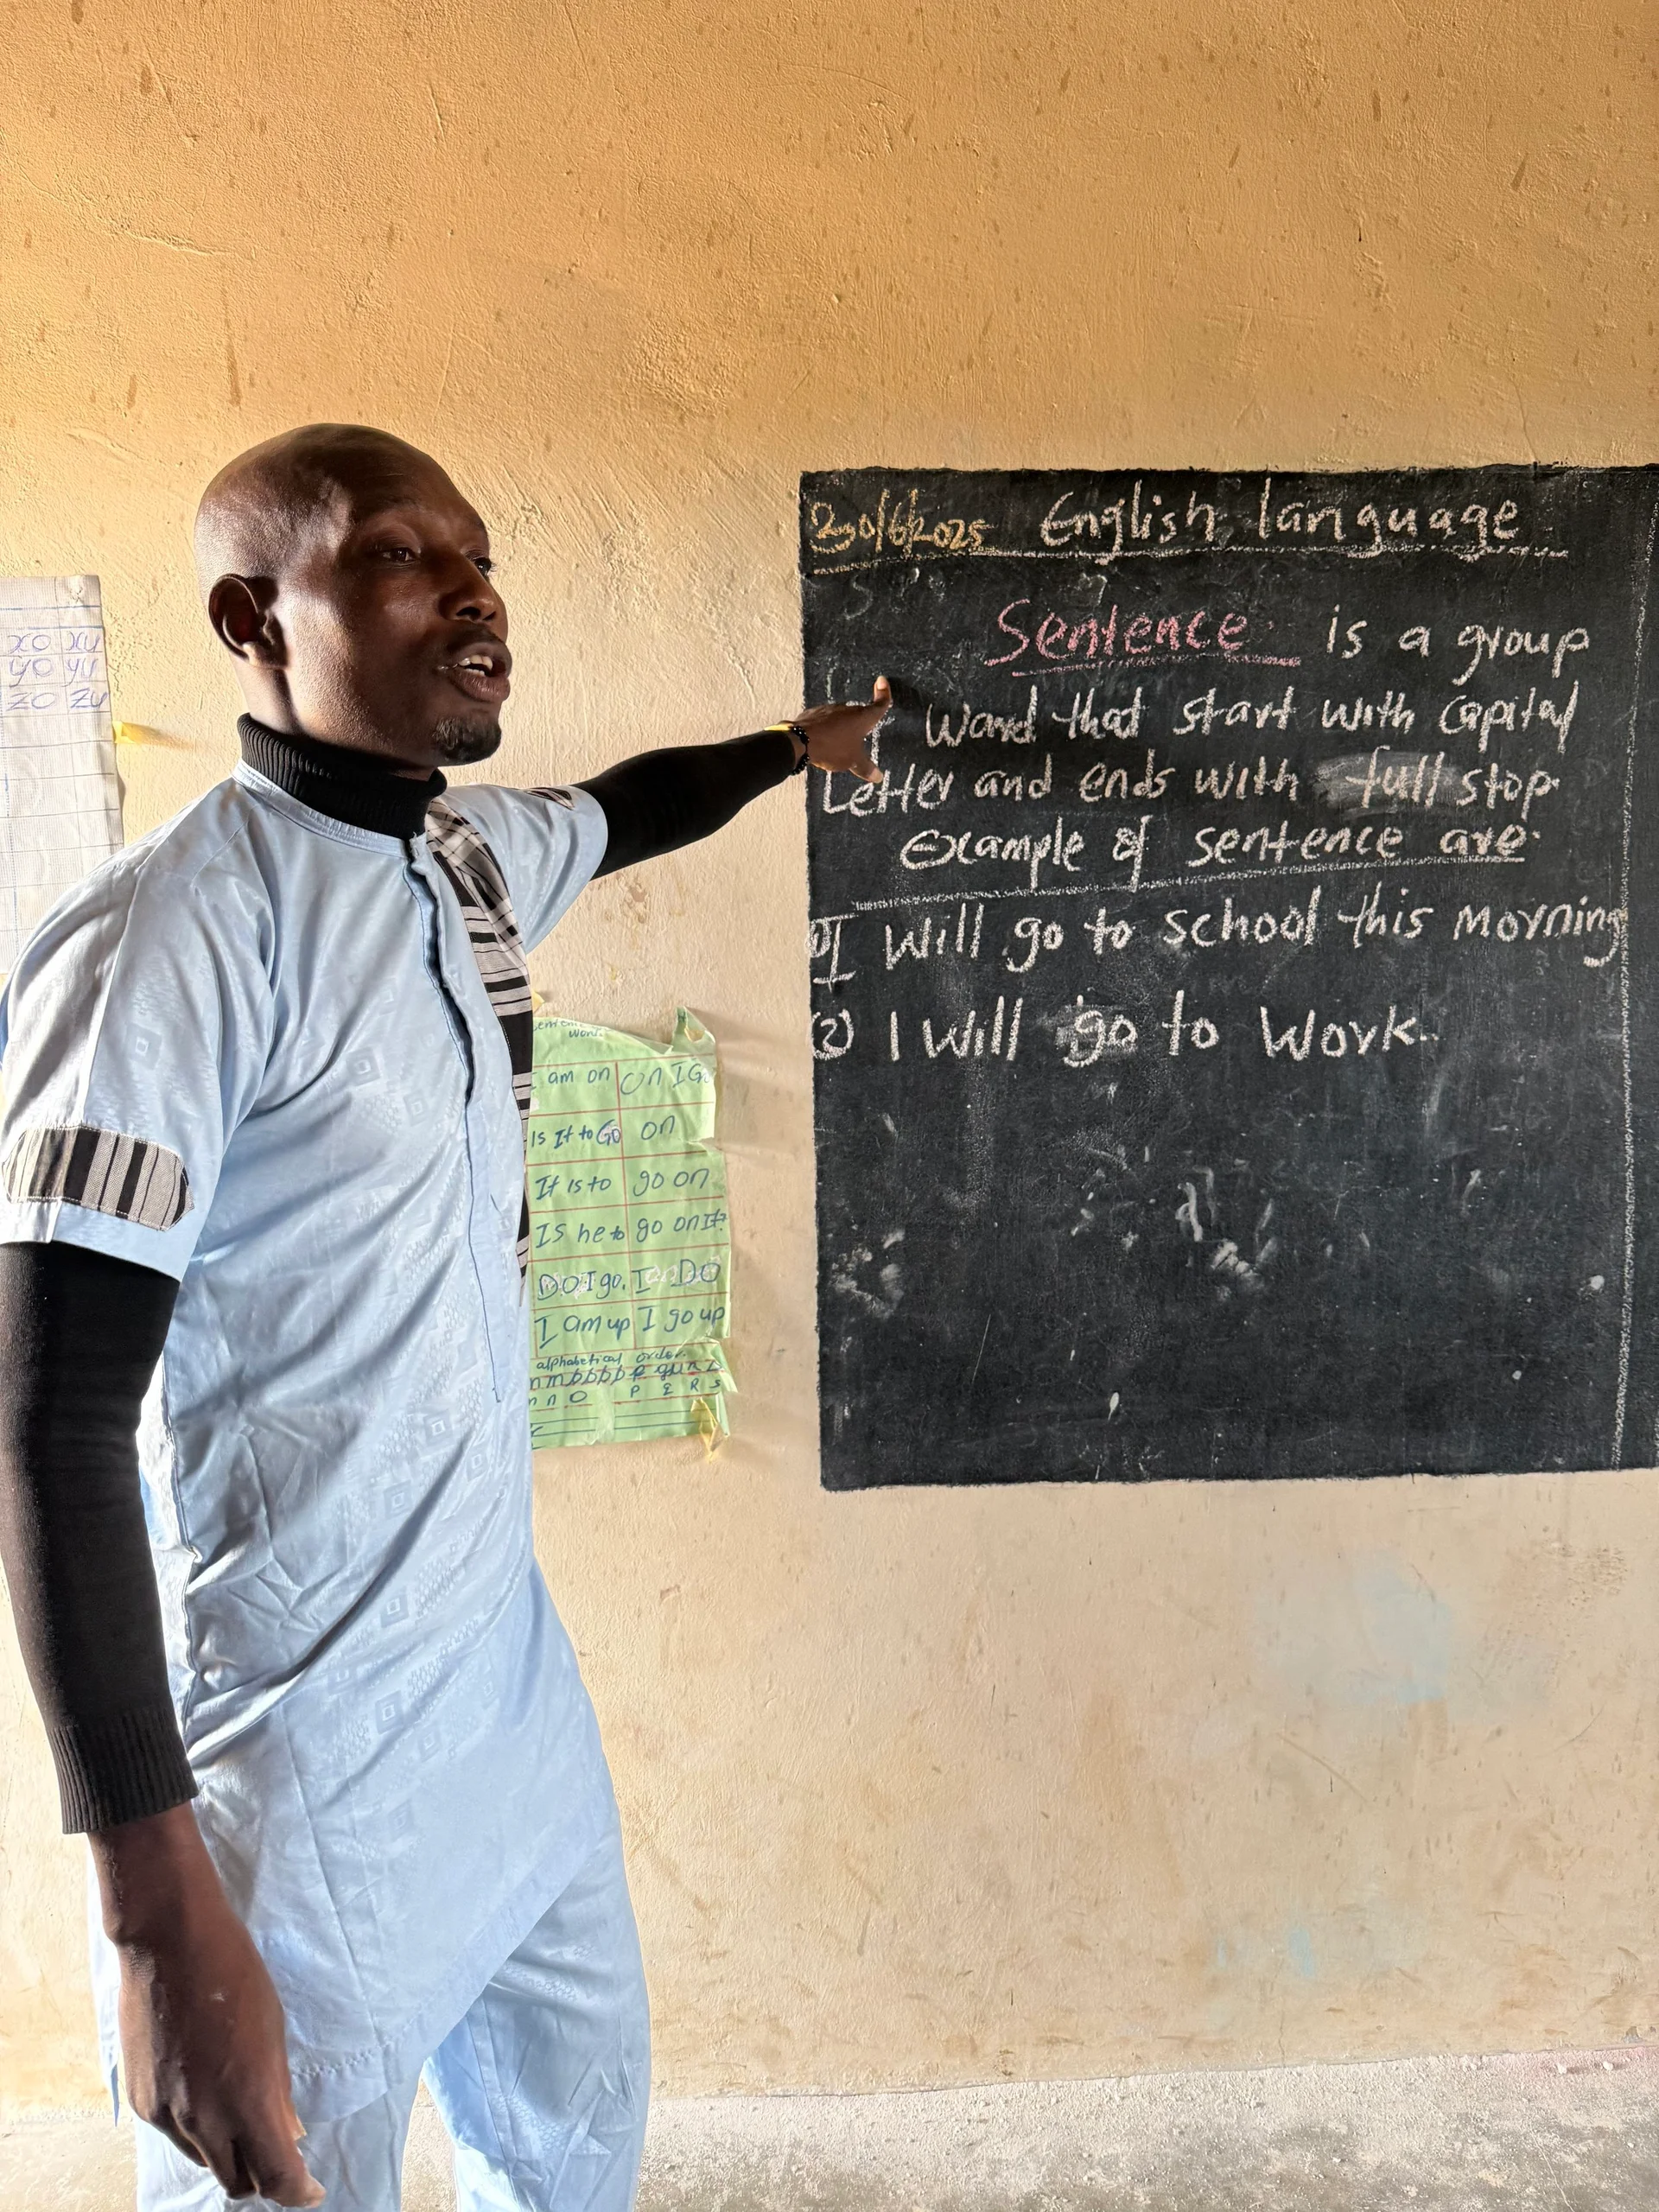 xo xu
yo yu
zo zu
30/6/2025 English language
Sentence is a group
Word that start with capital
Letter and ends with full stop.
Example of sentence are.
I Will go to school this morning
(2) I Will go to Work.
Word
I am on On I Go
Is It to Go on
It is to go on
Is he to go on It?
DO I go. I DO
I am up I go up
alphabetical order.
P Q R S